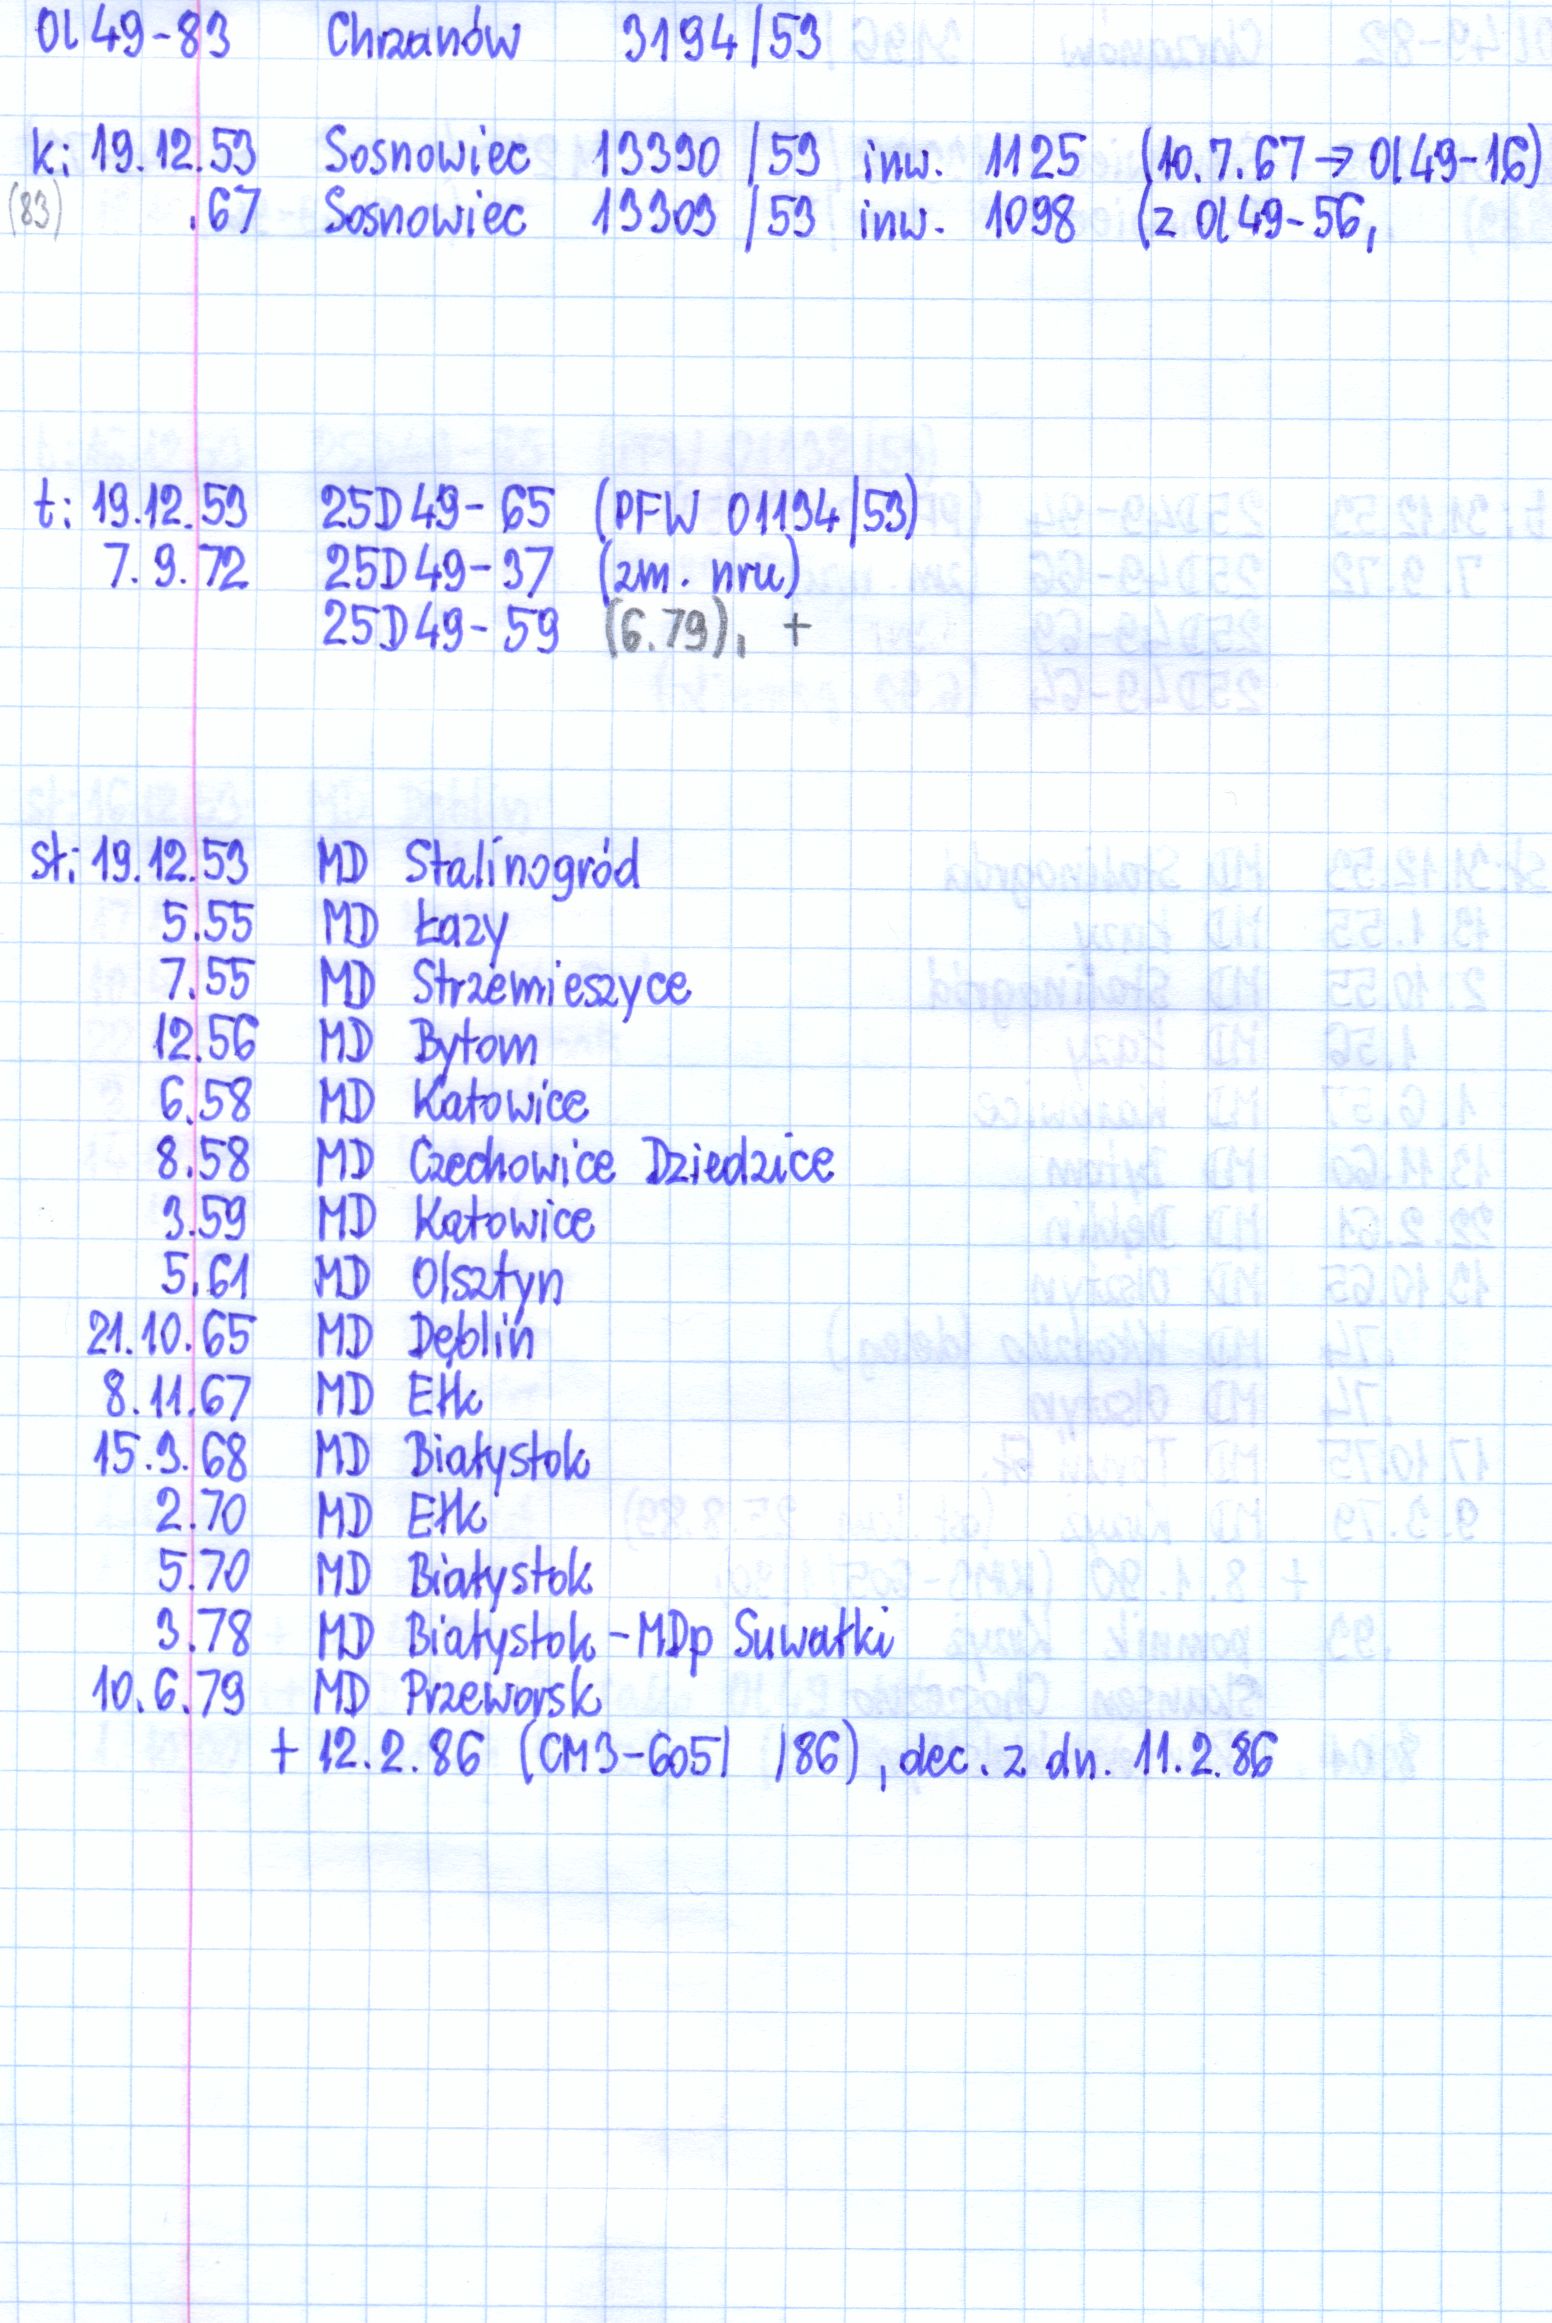 Ol 49-83 Chrzanów 3194/53
k: 19.12.53 Sosnowiec 13330/53 inw. 1125 (10.7.67 → Ol 49-16)
(83) .67 Sosnowiec 13303/53 inw. 1098 (z Ol 49-56,
t: 19.12.53 25D49-65 (PFW 01194/53)
7.9.72 25D49-37 (zm. nru)
25D49-59 (6.79), +
st: 19.12.53 MD Stalinogród
5.55 MD Łazy
7.55 MD Strzemieszyce
12.56 MD Bytom
6.58 MD Katowice
8.58 MD Czechowice Dziedzice
3.59 MD Katowice
5.61 MD Olsztyn
21.10.65 MD Dęblin
8.11.67 MD Ełk
15.3.68 MD Białystok
2.70 MD Ełk
5.70 MD Białystok
3.78 MD Białystok-MDp Suwałki
10.6.79 MD Przeworsk
+ 12.2.86 (CM3-605/ /86), dec. z dn. 11.2.86